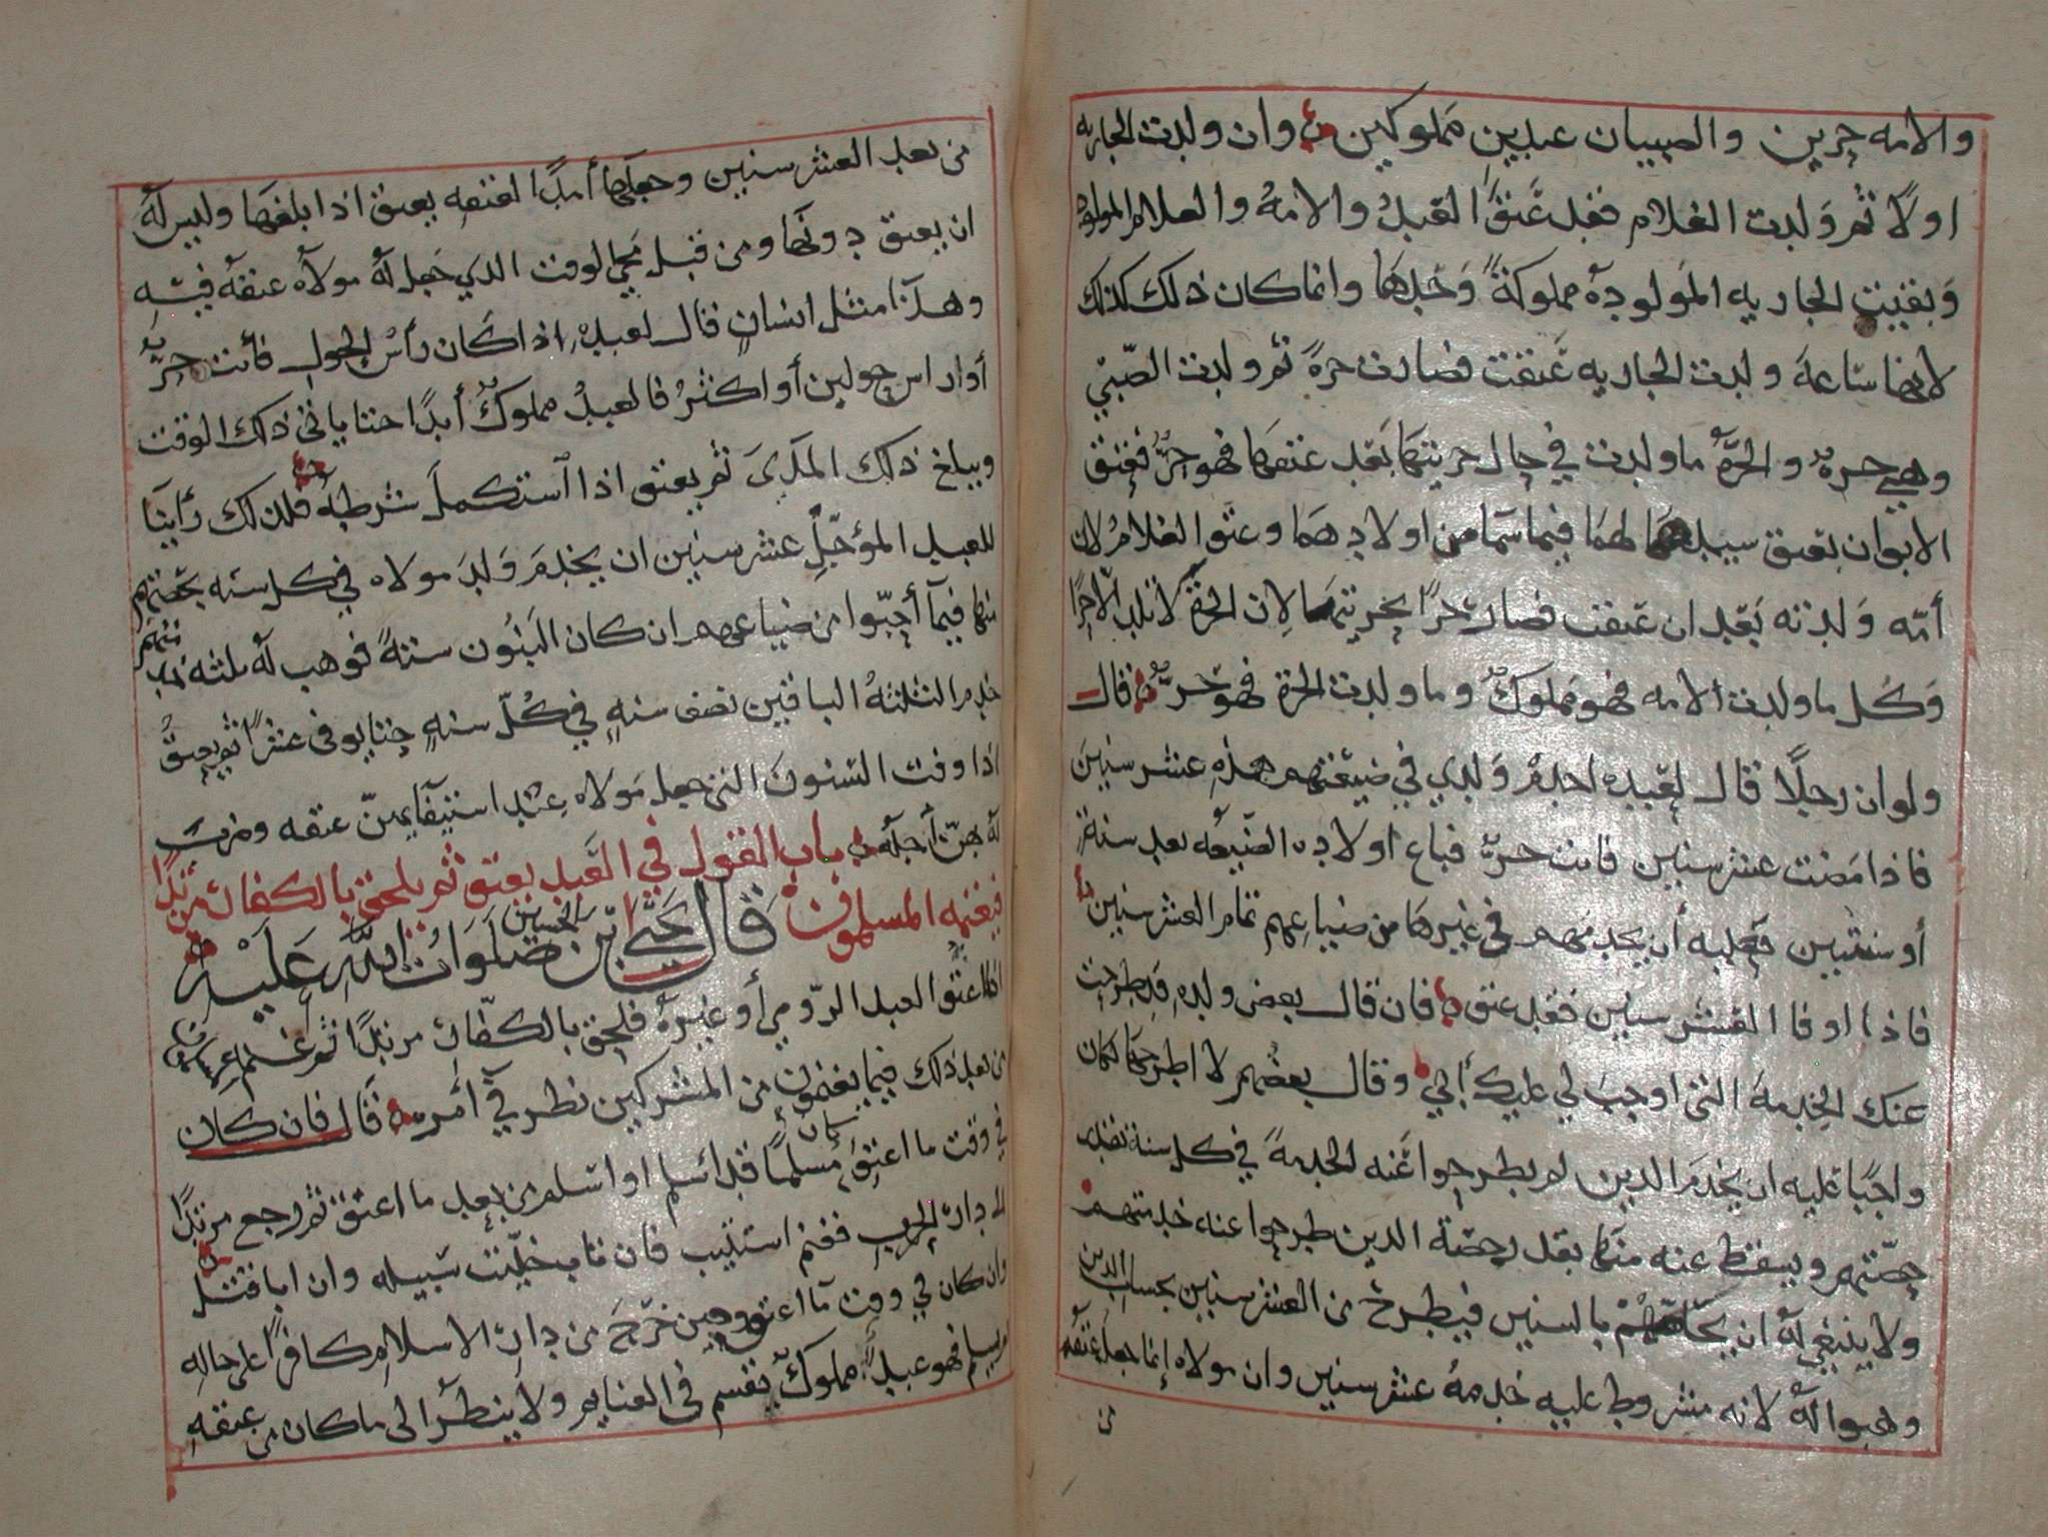 والامه حرين والصبيان عبدين مملوكين وان ولدت الجاريه
اولا ثم ولدت الغلام فقد عتق العبد والامه والغلام المولود
وبقيت الجاريه المولوده مملوكة وحدها وانما كان ذلك كذلك
لانها ساعة ولدت الجاريه عتقت فصارت حرة ثم ولدت الصبي
وهي حره والحرة ما ولدت في حال حريتها بعد عتقها فهو حر فعتق
الابوان بعتق سيدهما لهما فيما سما من اولادهما وعتق الغلام لان
أمه ولدته بعد ان عتقت فصار حرا بحريتها لان الحرة لا تلد الا حرا
وكل ما ولدت الامه فهو مملوك وما ولدت الحرة فهو حر قال
ولو ان رجلا قال لعبده اخدم ولدي في ضيعتهم هذه عشر سنين
فاذا مضت عشر سنين فانت حر فباع اولاده الضيعه بعد سنة
أو سنتين فعليه أن يخدمهم في غيرها من ضياعهم تمام العشر سنين
فاذا اوفا العشر سنين فقد عتق فان قال بعض ولده قد طرحت
عنك الخدمة التي اوجب لي عليك أبي وقال بعضهم لا اطرحها كان
واجبا عليه ان يخدم الذين لم يطرحوا عنه الخدمة في كل سنة بقدر
حصتهم ويسقط عنه منها بقدر حصة الذين طرحوا عنه خدمتهم
ولا ينبغي له ان بالسنين فيطرح من العشر سنين بحساب الذين
وهبوا له لانه مشروط عليه خدمة عشر سنين وان مولاه إنما جعل عتقه
من
من بعد العشر سنين وجعلها أمدا لعتقه يعتق اذا بلغها وليس له
ان يعتق دونها ومن قبل مجي الوقت الذي جعل له مولاه عتقه فيه
وهذا مثل انسان قال لعبده اذا كان رأس الحول فأنت حر
أو راس حولين أو اكثر فالعبد مملوك أبدا حتا ياتي ذلك الوقت
ويبلغ ذلك المدى ثم يعتق اذا استكمل شرطه فلذلك رأينا
للعبد المؤجل عشر سنين ان يخدم ولد مولاه في كل سنه بحصتهم
منها فيما أحبوا من ضياعهم ان كان البنون ستة فوهب له ثلثه
خدم الثلثة الباقين نصف سنه في كل سنه حتا يوفي عشرا ثم يعتق
اذا وفت السنون التي جعل مولاه عند استيفايهن عتقه وضرب
له هن أجله باب القول في العبد يعتق ثم يلحق بالكفار مرتدا
فيغنمه المسلمون قال يحيى بن الحسين صلوات الله عليه
اذا اعتق العبد الرومي أو غيره فلحق بالكفار مرتدا ثم غنم
من بعد ذلك فيما يغنمون من المشركين نظر في أمره قال فان كان
في وقت ما اعتق مسلما كان قد اسلم او اسلم من بعد ما اعتق ثم رجع مرتدا
الى دار الحرب فغنم استتيب فان تاب خليت سبيله وان ابا قتل
وان كان في وقت ما اعتق وحين خرج من دار الاسلام كافرا على حاله
لم يسلم فهو عبد مملوك يقسم في الغنايم ولا ينظر الى ما كان من عتقه